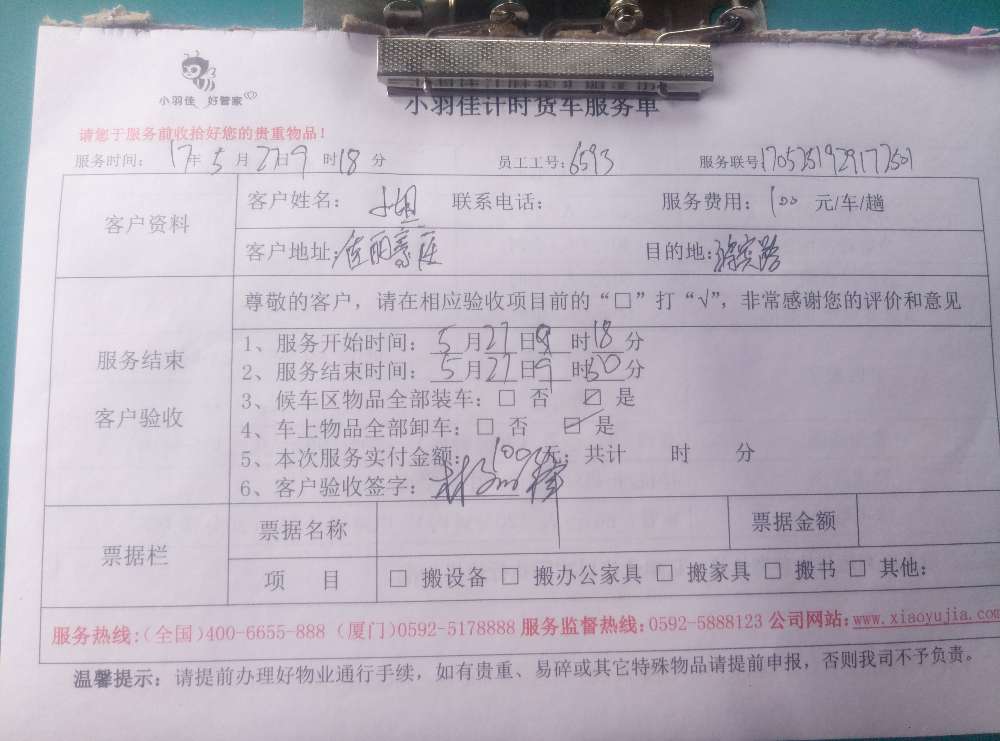 小羽佳 好管家
小羽佳计时货车服务单
请您于服务前收拾好您的贵重物品！
服务时间： 17年 5 月 27日 9 时 18 分 员工工号：6593 服务联号
客户资料
客户姓名： 联系电话： 服务费用：100 元/车/趟
客户地址： 目的地：
服务结束
客户验收
尊敬的客户，请在相应验收项目前的“□”打“√”，非常感谢您的评价和意见
1、服务开始时间： 5 月27日9 时18 分
2、服务结束时间： 5 月27日9 时50分
3、候车区物品全部装车：□ 否 ☑ 是
4、车上物品全部卸车：□ 否 ☑ 是
5、本次服务实付金额：100元；共计 时 分
6、客户验收签字：
票据栏
票据名称 票据金额
项 目 □ 搬设备 □ 搬办公家具 □ 搬家具 □ 搬书 □ 其他：
服务热线：（全国）400-6655-888（厦门）0592-5178888 服务监督热线：0592-5888123 公司网站：www.xiaoyujia.com
温馨提示：请提前办理好物业通行手续，如有贵重、易碎或其它特殊物品请提前申报，否则我司不予负责。